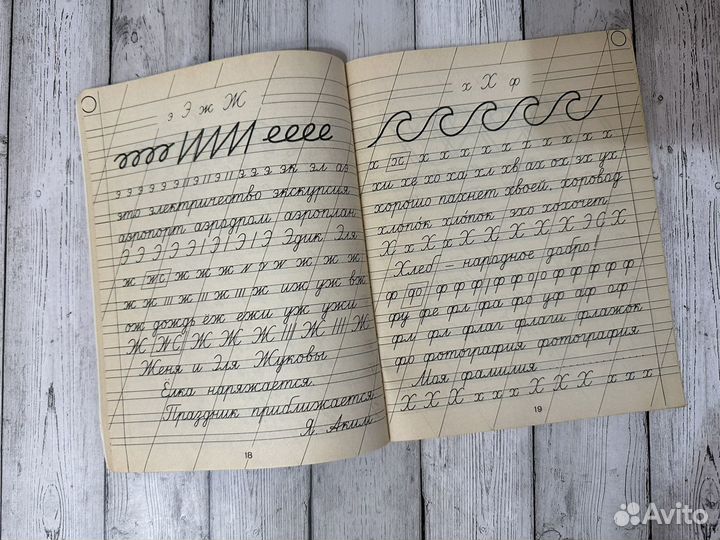 э Э ж Ж
э э э э э э || э || э || э э э э эк эл аэ
это электричество экскурсия
аэропорт аэродром аэроплан
Э Э | Э | Э | Э | Э Эдик Эля
ж ж ж ж ж ж ж ж ж
ж ж ж ж ж иж уж вж
ож дождь ёж ежи уж ужи
Ж Ж Ж Ж Ж Ж
Женя и Эля Жуковы
Ёлка наряжается.
Праздник приближается.
Я. Аким
18
х Х ф
х х х х х х х х х х х
хи хе хо ха хл хв ах ох эх ух
хорошо пахнет хвоей, хоровод
хлопо́к хло́пок эхо хохочет
Х х Х х Х Х Х Х Х Э С Х
Хлеб – народное добро!
ф ф ф ф ф ф ф ф ф ф
фу фе фл фа фо уф аф оф
фл фл флаг флаги флажок
фо фотография фотография
Моя фамилия
Х Х Х х х х Х Х Х х х х
19
Avito